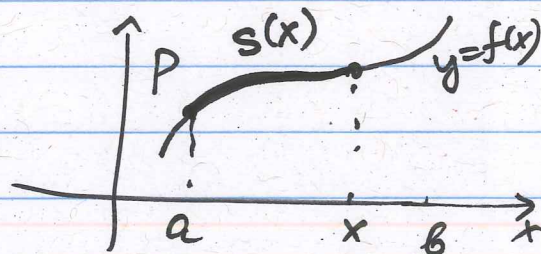 s(x)
P
y=f(x)
a x b x